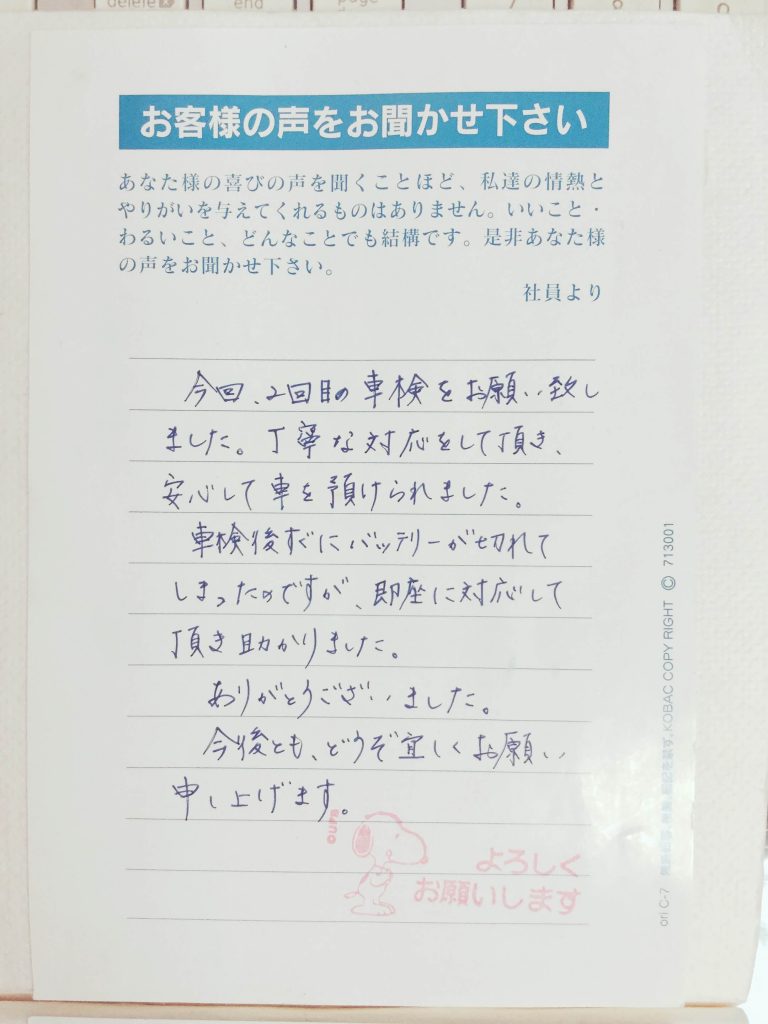 delete
end
page
7
8
9
お客様の声をお聞かせ下さい
あなた様の喜びの声を聞くことほど、私達の情熱と
やりがいを与えてくれるものはありません。いいこと・
わるいこと、どんなことでも結構です。是非あなた様
の声をお聞かせ下さい。
社員より
今回、2回目の車検をお願い致し
ました。丁寧な対応をして頂き、
安心して車を預けられました。
車検後すぐにバッテリーが切れて
しまったのですが、即座に対応して
頂き助かりました。
ありがとうございました。
今後とも、どうぞ宜しくお願い
申し上げます。
よろしく
お願いします
ori C-7
KOBAC COPY RIGHT © 713001